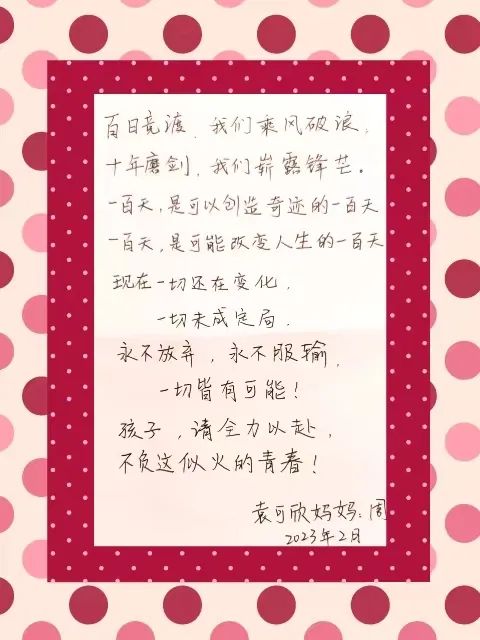 百日竞渡,我们乘风破浪,
十年磨剑,我们崭露锋芒。
一百天,是可以创造奇迹的一百天
一百天,是可能改变人生的一百天
现在一切还在变化,
一切未成定局,
永不放弃,永不服输,
一切皆有可能!
孩子,请全力以赴,
不负这似火的青春!
袁可欣妈妈:周
2023年2月